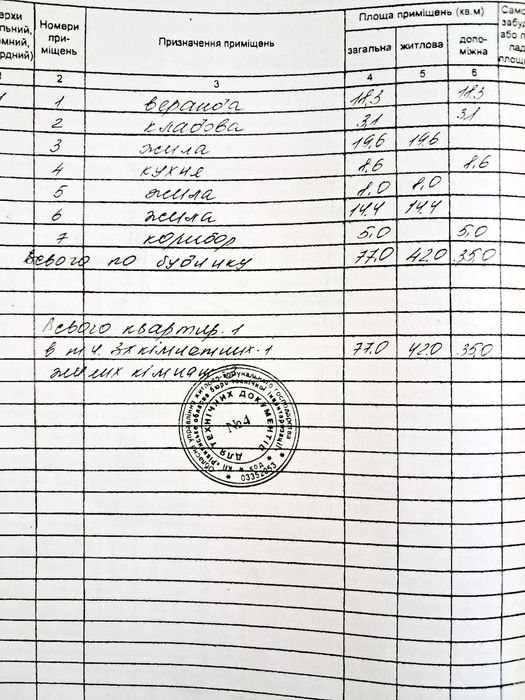 ерхи Номери Призначення приміщень Площа приміщень (кв.м) Само
льний, при- загальна житлова допо- забу
мний, міщень міжна або п
рдний) лад
площ
1 2 3 4 5 6
1 1 веранда 18,3 18,3
2 кладова 3,1 3,1
3 жила 19,6 19,6
4 кухня 8,6 8,6
5 жила 8,0 8,0
6 жила 14,4 14,4
7 коридор 5,0 5,0
Всього по будинку 77,0 42,0 35,0
Всього квартир-1
в т.ч. 3х кімнатних-1 77,0 42,0 35,0
жилих кімнат
Обласне управління житлово-комунального господарства
КП «Рівненське обласне бюро технічної інвентаризації»
ДЛЯ ТЕХНІЧНИХ ДОКУМЕНТІВ
№4
код
03352053